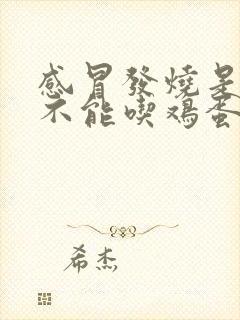 感冒發燒是
不能喫鷄蛋
希杰